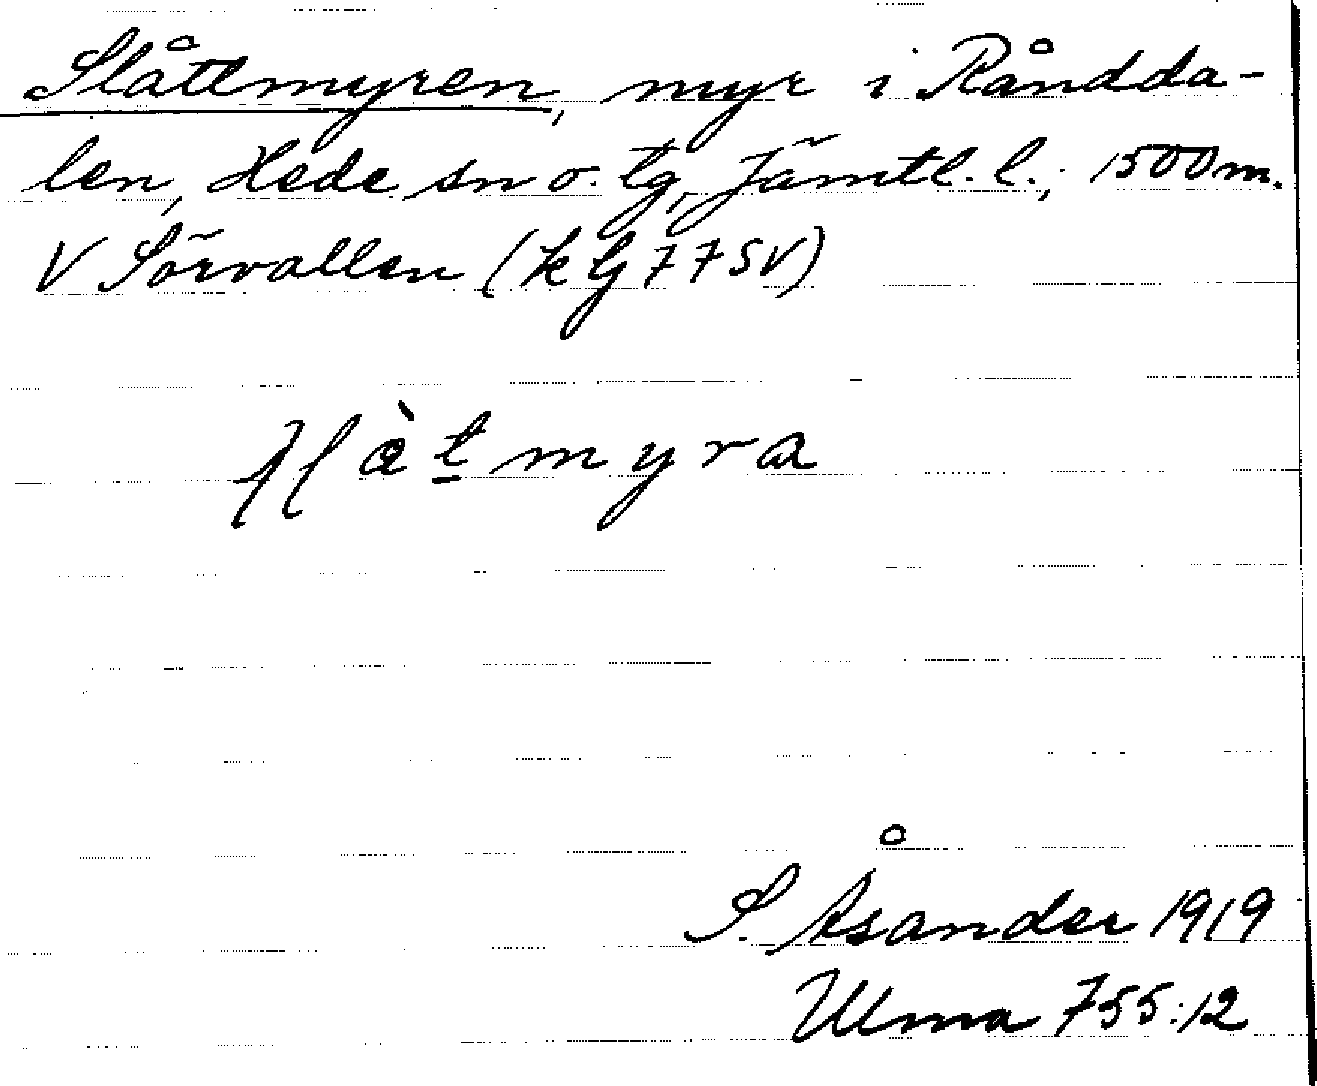 Slåttmyren, myr i Råndda-
len, Hede sn o. tg, Jämtl. l.; 1500 m.
V Sörvallen (k bj 77SV)
myra
S. Åsander 1919
Ulma 755:12